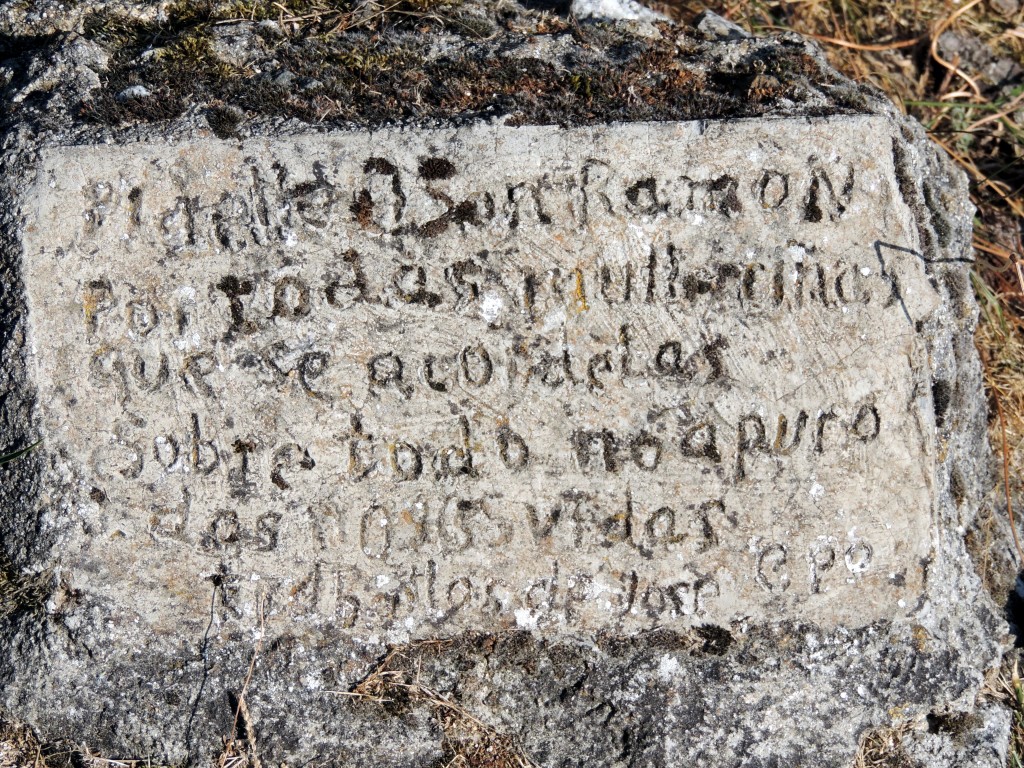 Pidelle A San RamoN
Por todas mulleriñas
que se acordelas
sobre todo no apuro
das vidas
de Jose CPO